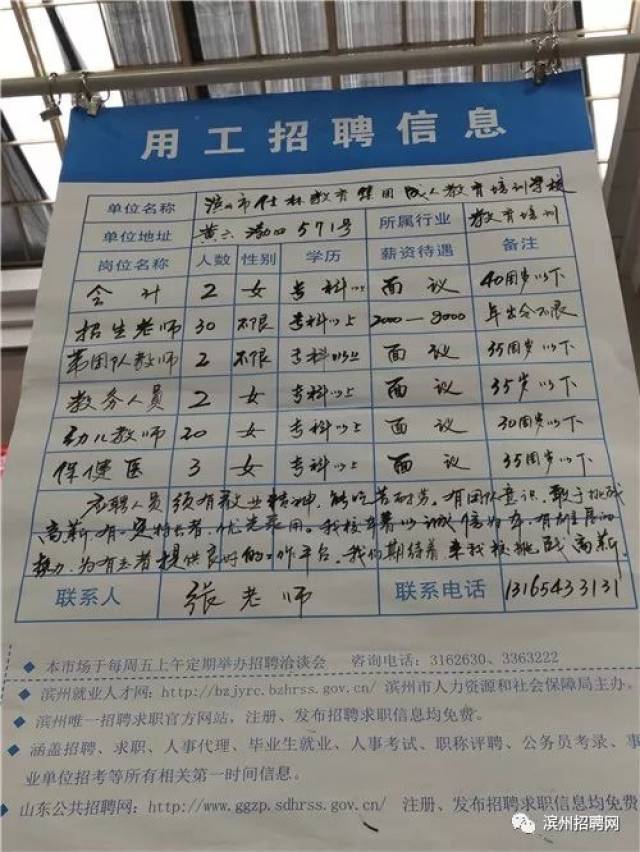 用工招聘信息
单位名称 滨州市仕林教育集团成人教育培训学校
单位地址 黄六渤四571号 所属行业 教育培训
岗位名称 人数 性别 学历 薪资待遇 备注
会计 2 女 专科以上 面议 40周岁以下
招生老师 30 不限 专科以上 2000—8000 年龄不限
2 不限 专科以上 面议 35周岁以下
教务人员 2 女 专科以上 面议 35岁以下
幼儿教师 20 女 专科以上 面议 30周岁以下
保健医 3 女 专科以上 面议 35周岁以下
应聘人员须有敬业精神,能吃苦耐劳。有团队意识、敢于挑战
高薪,有一定特长者,优先录用。我校本着以诚信为本,有雄厚的
势力,为有志者提供良好的工作平台。我们期待着来我校挑战高薪。
联系人 张老师 联系电话 13165433131
◆ 本市场于每周五上午定期举办招聘洽谈会 咨询电话:3162630、3363222
◆ 滨州就业人才网:http://bzjyrc.bzhrss.gov.cn/ 滨州市人力资源和社会保障局主办。
◆ 滨州唯一招聘求职官方网站,注册、发布招聘求职信息均免费。
◆ 涵盖招聘、求职、人事代理、毕业生就业、人事考试、职称评聘、公务员考录、事
业单位招考等所有相关第一时间信息。
◆ 山东公共招聘网:http://www.ggzp.sdhrss.gov.cn/ 注册、发布招聘求职信息均免费
滨州招聘网